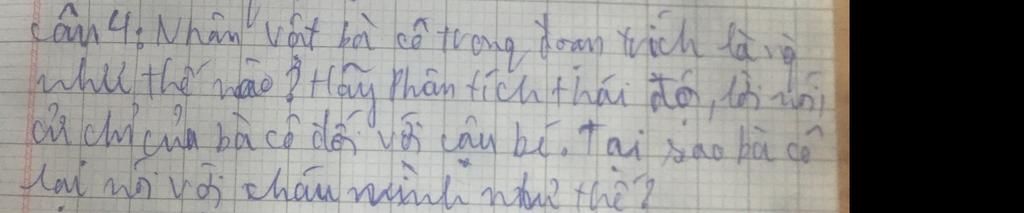 Câu 4: Nhân vật bà cô trong đoạn trích là
như thế nào? Hãy phân tích thái độ, lời nói,
cử chỉ của bà cô đối với cậu bé. Tại sao bà cô
lại nói với cháu mình như thế?